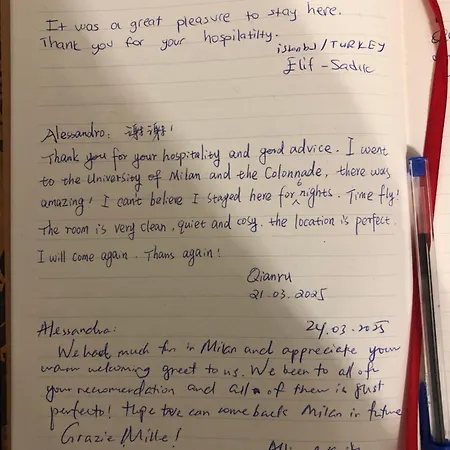 It was a great pleasure to stay here.
Thank you for your hospilatilty.
istanbul/TURKEY
Elif - Sadık
Alessandro: 谢谢!
Thank you for your hospitality and good advice. I went
to the University of Milan and the Colonnade, there was
amazing! I can't believe I stayed here for 6 nights. Time fly!
The room is very clean, quiet and cosy. the location is perfect.
I will come again. Thans again!
Qianru
21.03.2025
Alessandra: 24.03.2025
We had much fun in Milan and appreciate your
warm welcoming greet to us. We been to all of
your recomendation and all of them is just
perfecto! Hope we can come back Milan in future
Grazie Mille!